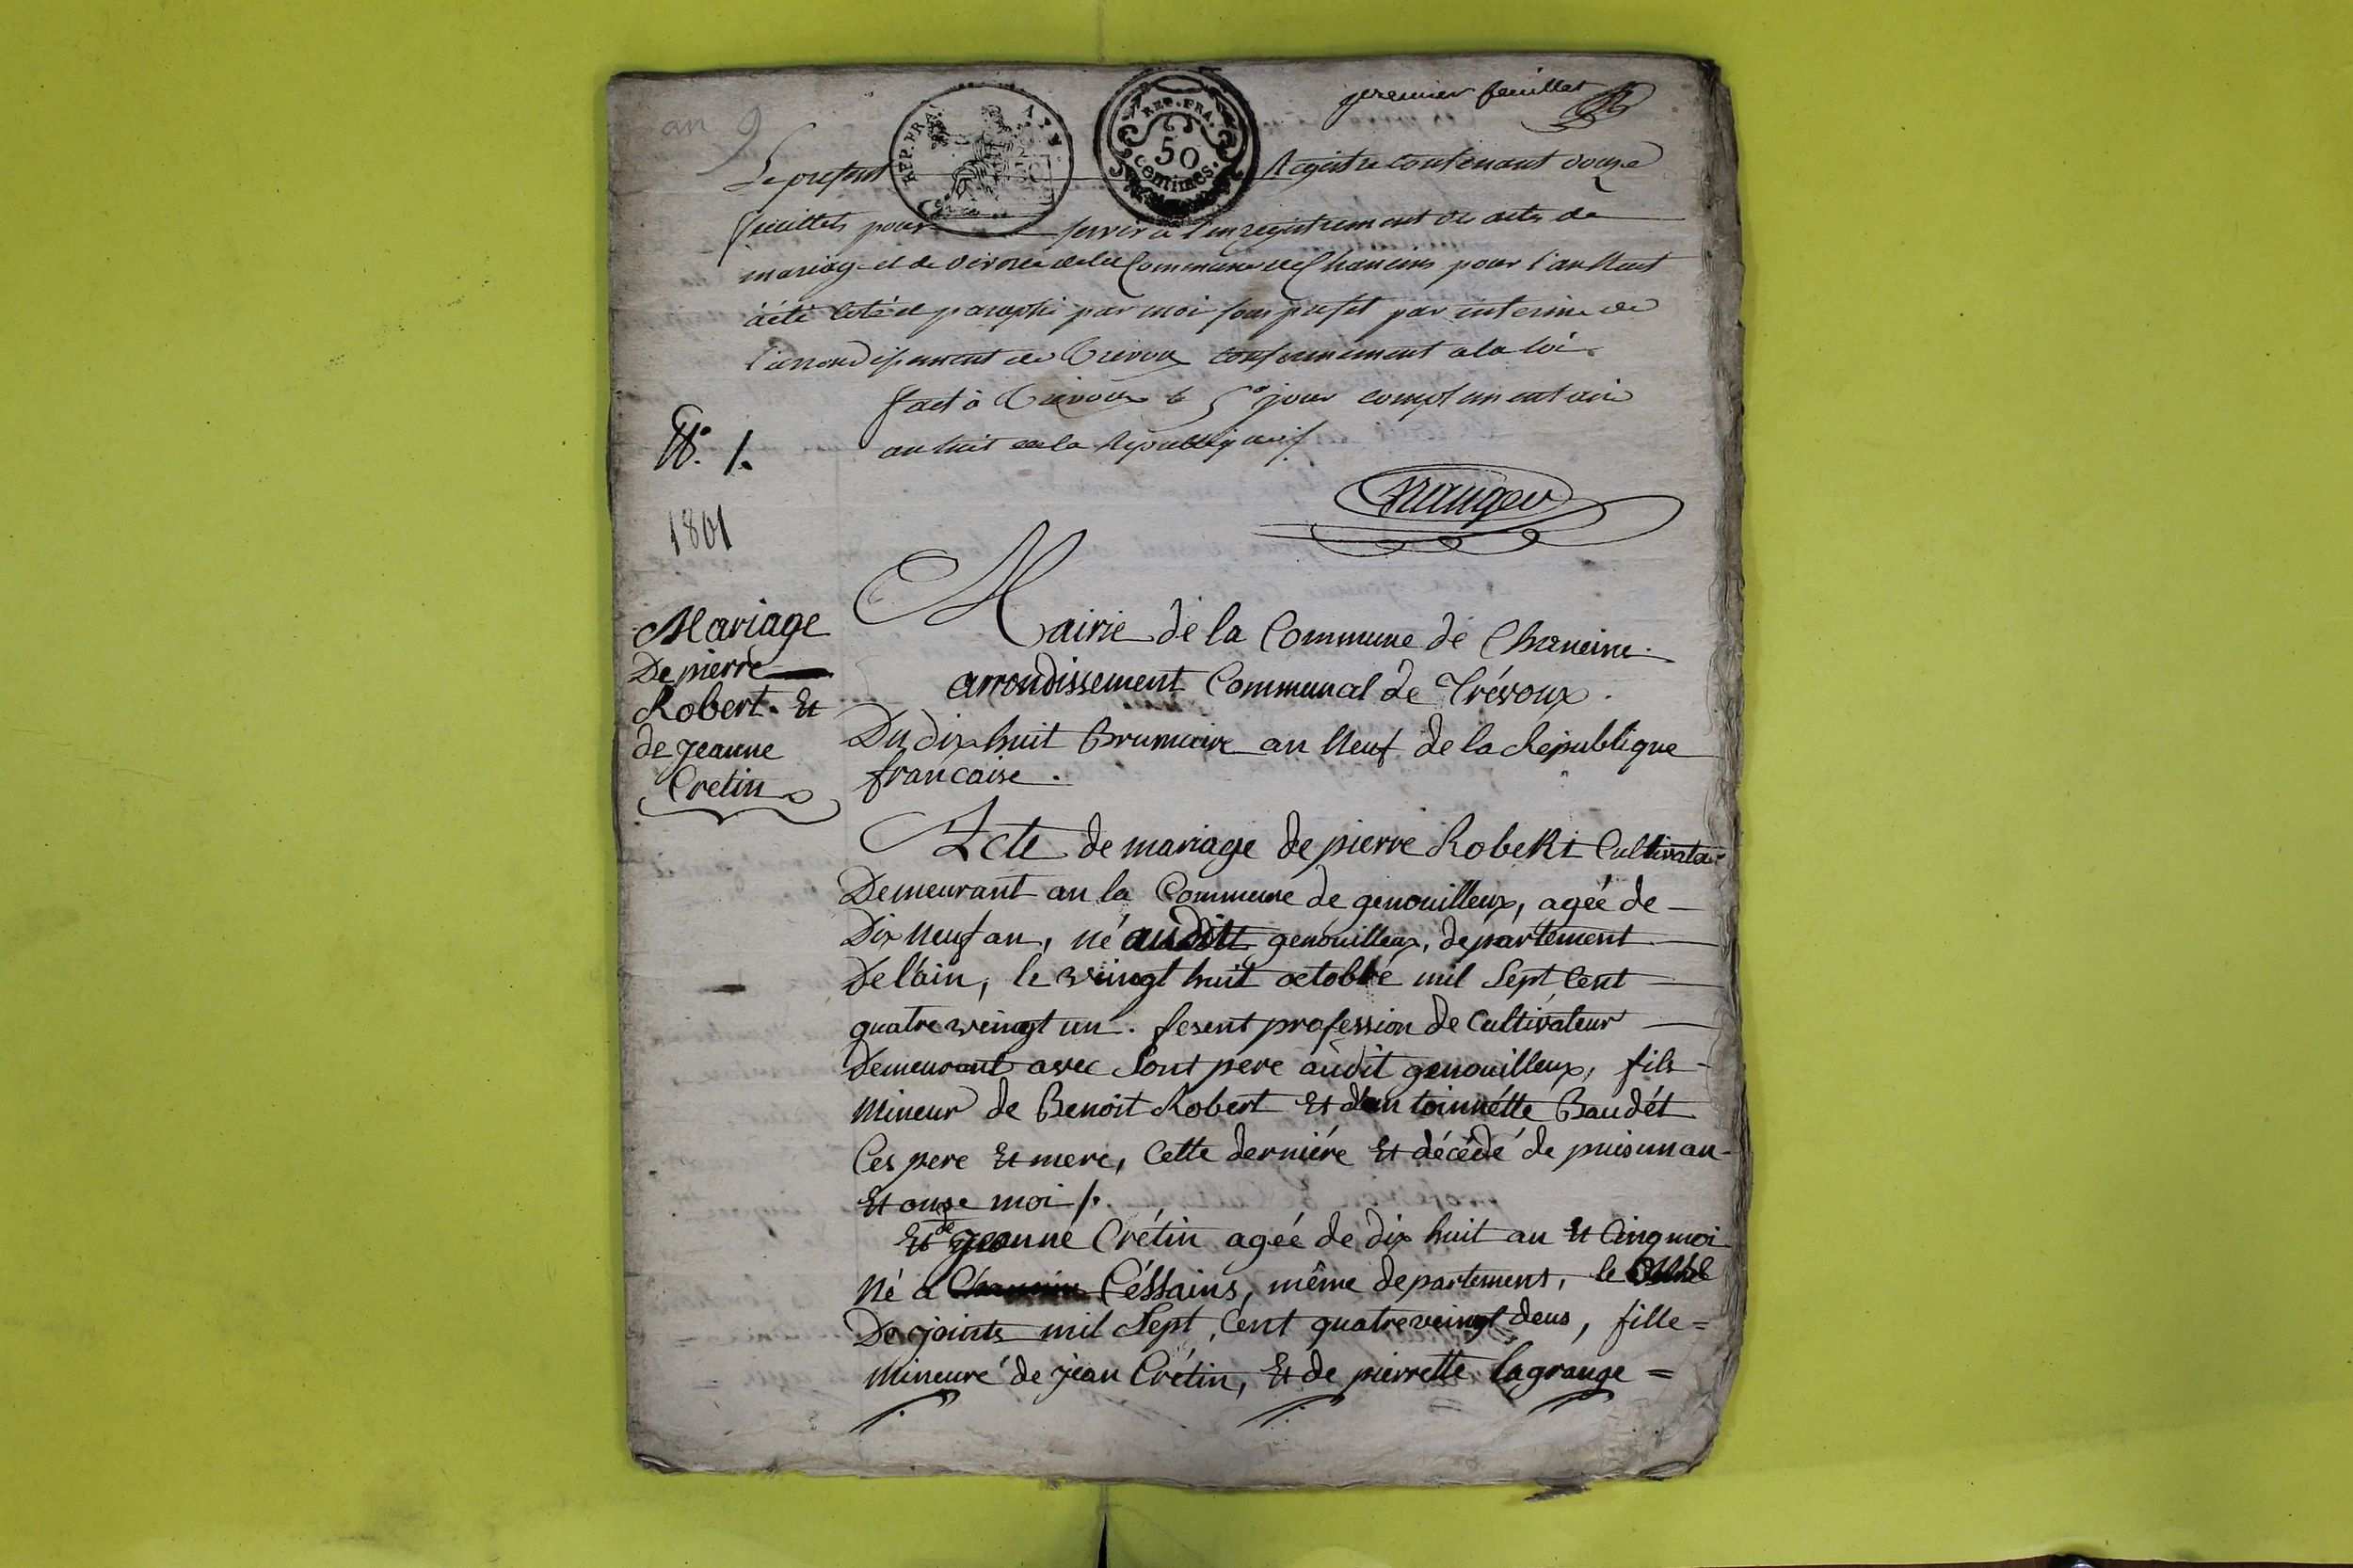 premier feuillet
an 9
REP. FRA.
REP. FRA.
50
centimes.
Le présent Registre contenant douze
feuillets pour servir à l'enregistrement des actes de
mariage et de divorce de la Commune de Chaneins pour l'an Neuf
a été coté et paraphé par moi sous prefet par interim de
l'arrondissement de Trevoux conformement a la loi.
fait à Trevoux le 5e jour complementaire
an huit de la Republique
N.° 1.
1801
Mairie de la Commune de Chaneine.
arrondissement Communal de Trévoux.
Mariage
De pierre
Robert. Et
de jeanne
Cretin
Du dix huit Brumaire an Neuf de la République
francaise.
Acte de mariage de pierre Robert Cultivateur
Demeurant an la Commune de genouilleux, ageé de
Dix Neuf an, né audit genouilleux, departement
De l'ain, le vingt huit octobre mil Sept Cent
quatre veingt un. fesent profession de Cultivateur
demeurant avec Sont pere audit genouilleux, fils
Mineur de Benoit Robert Et d'antoinnétte Baudét
Ces pere Et mere, Cette derniére Et décédé de puis un an
Et onze moi /.
Et de jeanne Crétin ageé de dix huit an Et Cinq moi
Né a Céssains, même departement, le
De joints mil Sept Cent quatre veingt deus, fille =
Mineure de jean Crétin, Et de pierrette lagrange =